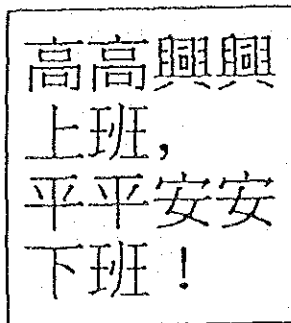 高高興興
上班，
平平安安
下班！